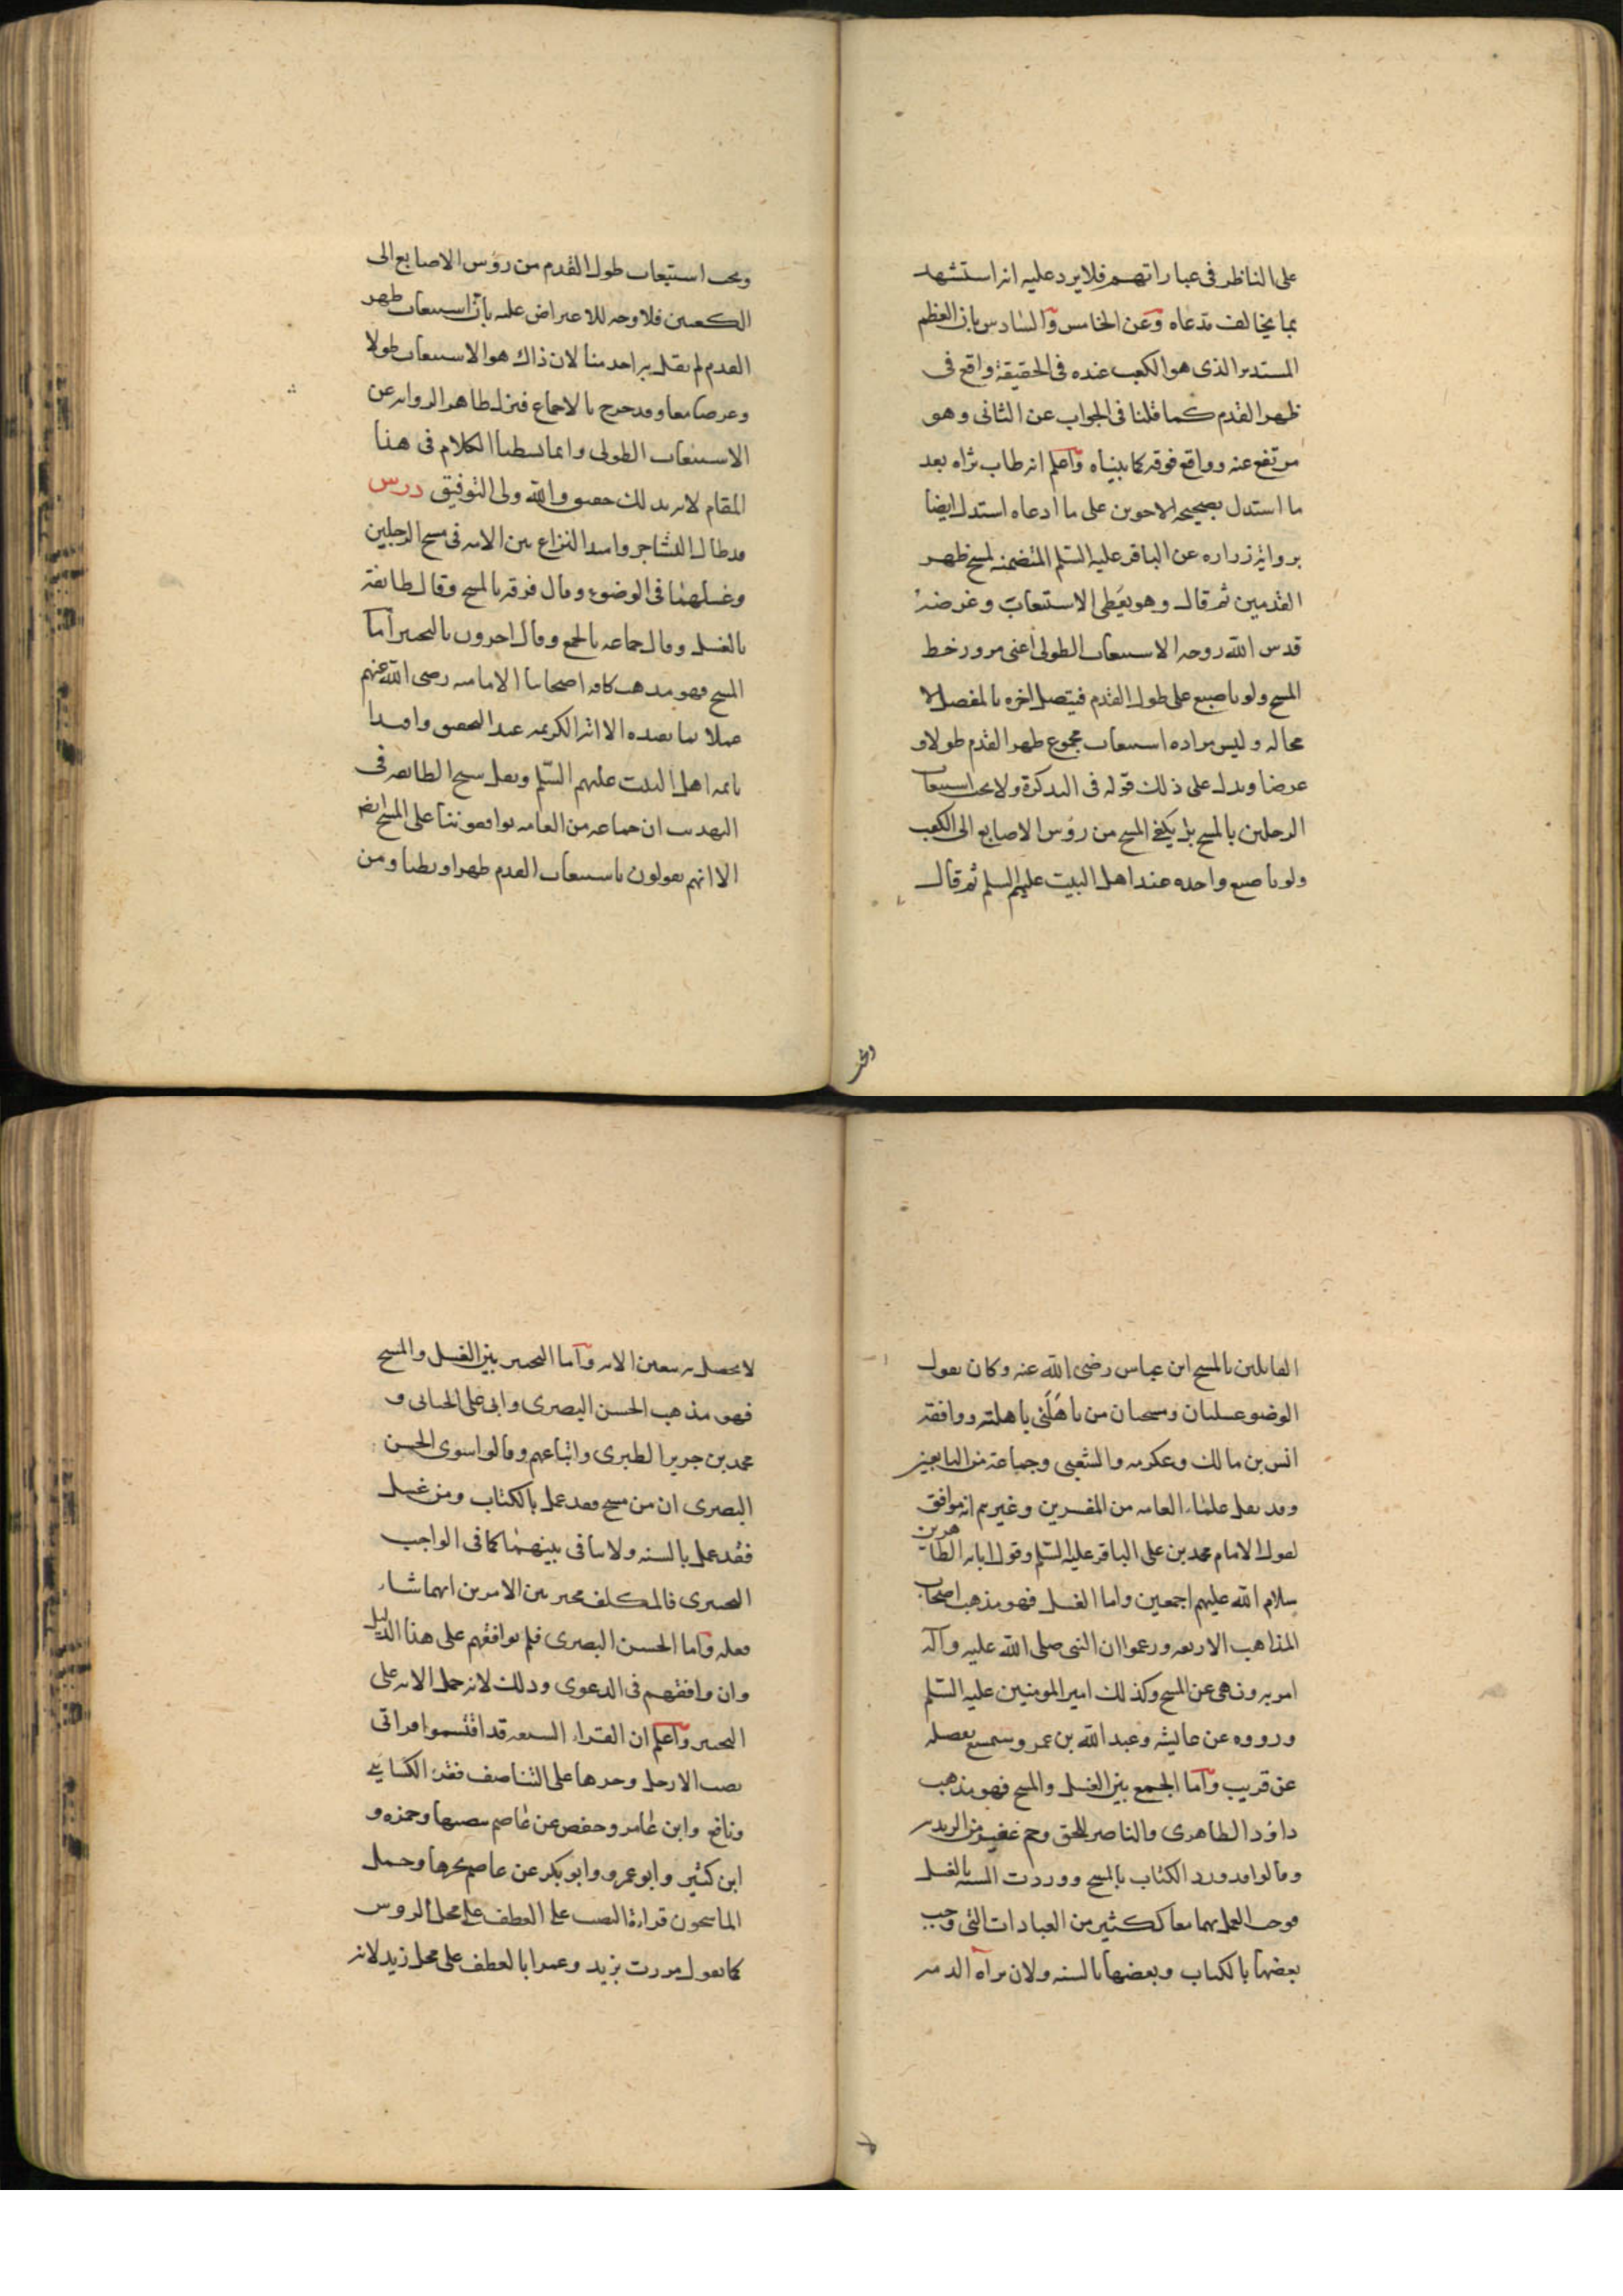 على الناظر فى عباراتهم فلا يرد عليه انه استشهد
بما يخالف مدعاه وعن الخامس والسادس بان العظم
المستدير الذى هو الكعب عنده فى الحقيقة واقع فى
ظهر القدم كما قلنا فى الجواب عن الثانى وهو
مرتفع عنه وواقع فوقه كما بيناه واعلم انه طاب ثراه بعد
ما استدل بصحيحة الاخوين على ما ادعاه استدل ايضا
برواية زراره عن الباقر عليه السلم المتضمنه لمسح ظهر
القدمين ثم قال وهو يعطى الاستيعاب وغرضه
قدس الله روحه الاستيعاب الطولى اعنى مرور خط
المسح ولو باصبع على طول القدم فيتصل اخره بالمفصل لا
محاله وليس مراده استيعاب مجموع ظهر القدم طولا و
عرضا ويدل على ذلك قوله فى التذكرة ولا يجب استيعاب
الرجلين بالمسح بل يكفى المسح من رؤس الاصابع الى الكعب
ولو باصبع واحده عند اهل البيت عليهم السلم ثم قال
ويجب
ويجب استيعاب طول القدم من رؤس الاصابع الى
الكعبين فلا وجه للاعتراض عليه بأن استيعاب ظهر
القدم لم يقل به احد منا لان ذاك هو الاستيعاب طولا
وعرضا معا وقد خرج بالاجماع فنزل ظاهر الرواية عن
الاستيعاب الطولى وانما بسطنا الكلام فى هذا
المقام لانه بذلك حقيق والله ولى التوفيق درس
قد طال التشاجر وامتد النزاع بين الامه فى مسح الرجلين
وغسلهما فى الوضوء وقال فرقه بالمسح وقال طائفة
بالغسل وقال جماعه بالجمع وقال اخرون بالتخيير أما
المسح فهو مذهب كافه اصحابنا الاماميه رضى الله عنهم
عملا بما يفيده الاية الكريمه عند التحقيق واقتدا
بائمه اهل البيت عليهم السلم ونقل شيخ الطايفه فى
التهذيب ان جماعه من العامه يوافقوننا على المسح ايضا
الا انهم يقولون باستيعاب القدم ظهرا وبطنا ومن
القائلين بالمسح ابن عباس رضى الله عنه وكان يقول
الوضو غسلتان ومسحتان من باهلنى باهلته ووافقه
انس بن مالك وعكرمه والشعبى وجماعة من التابعين
وقد نقل علماء العامه من المفسرين وغيرهم انه موافق
لقول الامام محمد بن على الباقر عليه السلم وقول ابائه الطاهرين
سلام الله عليهم اجمعين واما الغسل فهو مذهب اصحاب
المذاهب الاربعه وزعموا ان النبى صلى الله عليه وآله
امر به ونهى عن المسح وكذلك امير المومنين عليه السلم
ورووه عن عايشه وعبد الله بن عمر وسمع تفصيله
عن قريب وأما الجمع بين الغسل والمسح فهو مذهب
داؤد الظاهرى والناصر للحق وجم غفير من الزيديه
وقالوا قد ورد الكتاب بالمسح ووردت السنه بالغسل
فوجب العمل بهما معا ككثير من العبادات التى وجب
بعضها بالكتاب وبعضها بالسنه ولان براه الذمه
لا
لا يحصل بيقين الا به وأما التخيير بين الغسل والمسح
فهو مذهب الحسن البصرى وابى على الجبائى و
محمد بن جرير الطبرى واتباعهم وقالوا سوى الحسن
البصرى ان من مسح فقد عمل بالكتاب ومن غسل
فقد عمل بالسنه ولا تنافى بينهما كما فى الواجب
التخييرى فالمكلف مخير بين الامرين ايهما شاء
فعله وأما الحسن البصرى فلم يوافقهم على هذا الدليل
وان وافقهم فى الدعوى وذلك لانه حمل الايه على
التخيير وأعلم ان القراء السبعه قد اقتسموا قراتى
نصب الارجل وجرها على التناصف فقرء الكسائى
ونافع وابن عامر وحفص عن عاصم بنصبها وحمزه و
ابن كثير وابو عمرو وابو بكر عن عاصم بجرها وحمل
الماسحون قراءة النصب على العطف على محل الروس
كما تقول مررت بزيد وعمرا بالعطف على محل زيد لانه